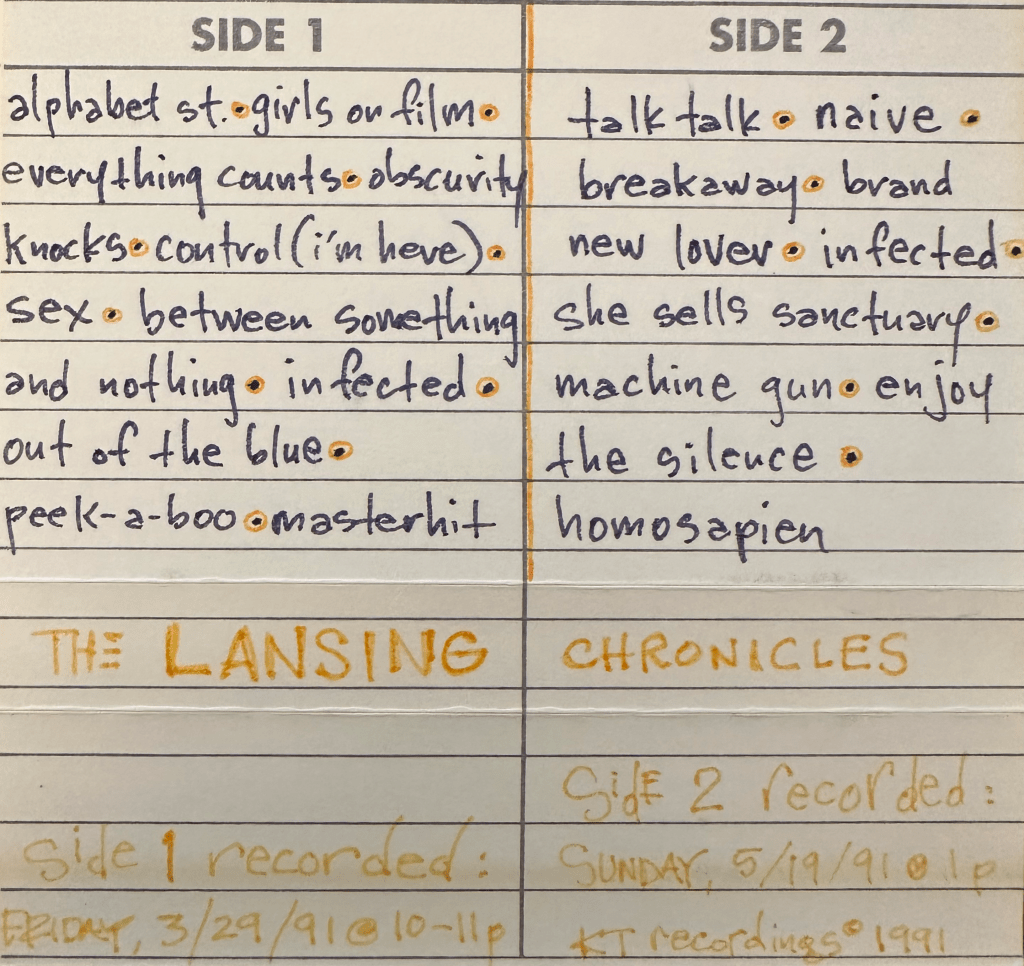 SIDE 1
alphabet st. • girls on film •
everything counts • obscurity
knocks • control (i'm here) •
sex • between something
and nothing • infected •
out of the blue •
peek-a-boo • masterhit
SIDE 2
talk talk • naive •
breakaway • brand
new lover • infected •
she sells sanctuary •
machine gun • enjoy
the silence •
homosapien
THE LANSING CHRONICLES
Side 1 recorded:
FRIDAY, 3/29/91 @ 10-11p
Side 2 recorded:
SUNDAY, 5/19/91 @ 1p
KT recordings © 1991